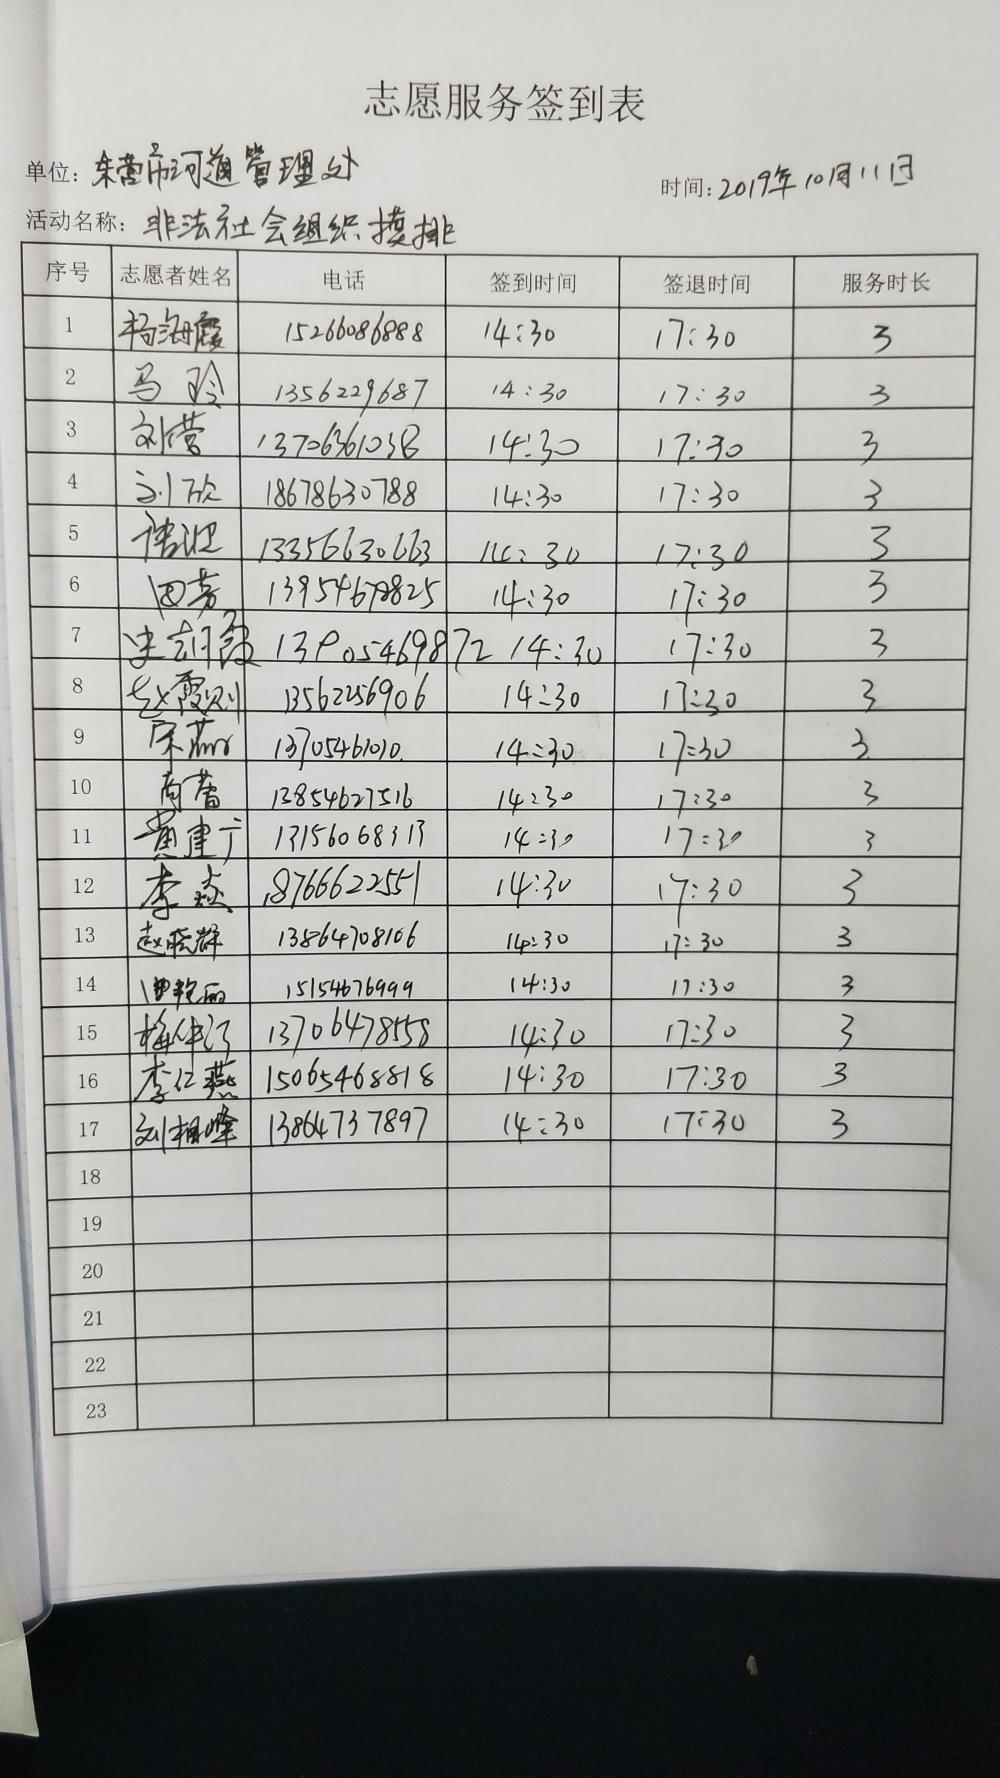 志愿服务签到表
单位：东营市河道管理处 时间：2019年10月11日
活动名称：非法社会组织摸排
序号 志愿者姓名 电话 签到时间 签退时间 服务时长
1 杨海霞 15266086888 14:30 17:30 3
2 马玲 1356229687 14:30 17:30 3
3 刘营 14:30 17:30 3
4 刘欣 18678630788 14:30 17:30 3
5 13356630663 14:30 17:30 3
6 田芳 14:30 17:30 3
7 14:30 17:30 3
8 赵霞 13562256906 14:30 17:30 3
9 宋燕 13705461010 14:30 17:30 3
10 商蕾 13854627516 14:30 17:30 3
11 黄建广 13156068313 14:30 17:30 3
12 李焱 18766622551 14:30 17:30 3
13 赵晓辉 13864708106 14:30 17:30 3
14 曹艳丽 15154676999 14:30 17:30 3
15 13706478558 14:30 17:30 3
16 李仁燕 15065468818 14:30 17:30 3
17 刘相峰 13864737897 14:30 17:30 3
18
19
20
21
22
23